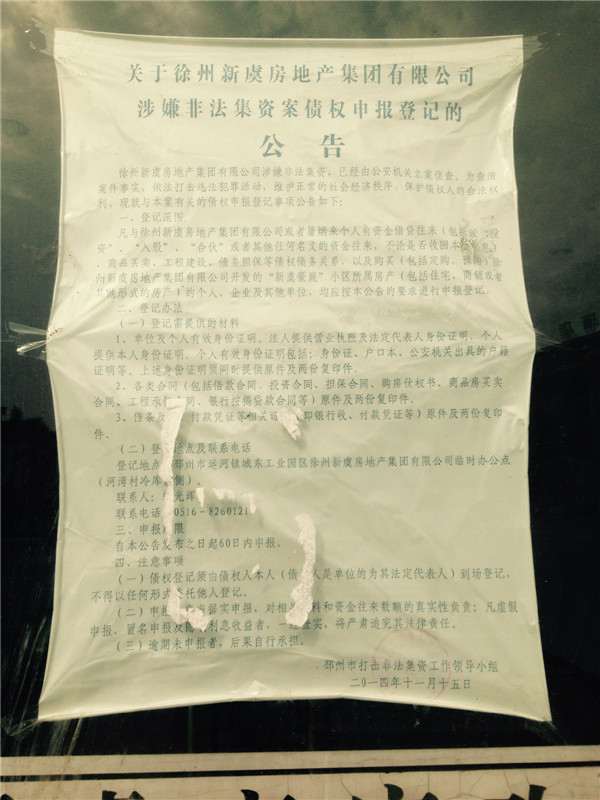 关于徐州新虞房地产集团有限公司
涉嫌非法集资案债权申报登记的
公告
徐州新虞房地产集团有限公司涉嫌非法集资，已经由公安机关立案侦查。为查清
案件事实，依法打击违法犯罪活动，维护正常的社会经济秩序，保护债权人的合法权
利，现就与本案有关的债权申报登记事项公告如下：
一、登记范围
凡与徐州新虞房地产集团有限公司或者屠炳来个人有资金借贷往来（包括
资”、“入股”、“合伙”或者其他任何名义的资金往来，不论是否收回本
）、商品买卖、工程建设、债务担保等债权债务关系，以及购买（包括定购、预
州新虞房地产集团有限公司开发的“新虞豪庭”小区所属房产（包括住宅、商铺或者
其他形式的房产）的个人、企业及其他单位，均应按本公告的要求进行申报登记。
二、登记办法
（一）登记需提供的材料
1、单位及个人有效身份证明。法人提供营业执照及法定代表人身份证明，个人
提供本人身份证明。个人有效身份证明包括：身份证、户口本、公安机关出具的户籍
证明等。上述身份证明需同时提供原件及两份复印件。
2、各类合同（包括借款合同、投资合同、担保合同、购房仕权书、商品房买卖
合同、工程承 同、银行按揭贷款合同等）原件及两份复印件。
3、借条及 、付款凭证等相关 即银行收、付款凭证等）原件及两份复印
件。
（二）登 地点及联系电话
登记地点 邳州市运河镇城东工业园区徐州新虞房地产集团有限公司临时办公点
（河湾村冷库 侧）。
联系人： 光辉
联系电话 0516-8260121
三、申报 限
自本公告发布之日起60日内申报。
四、注意事项
（一）债权登记须当债权人本人（债 人是单位的为其法定代表人）到场登记，
不得以任何形式 托他人登记。
（二）申报 据实申报，对相 料和资金往来数额的真实性负责；凡虚假
申报、冒名申报及 利息收益者，一经 实，将严肃追究其法律责任。
（三）逾期未申报者，后果自行承担。
邳州市打击非法集资工作领导小组
二〇一四年十一月十五日